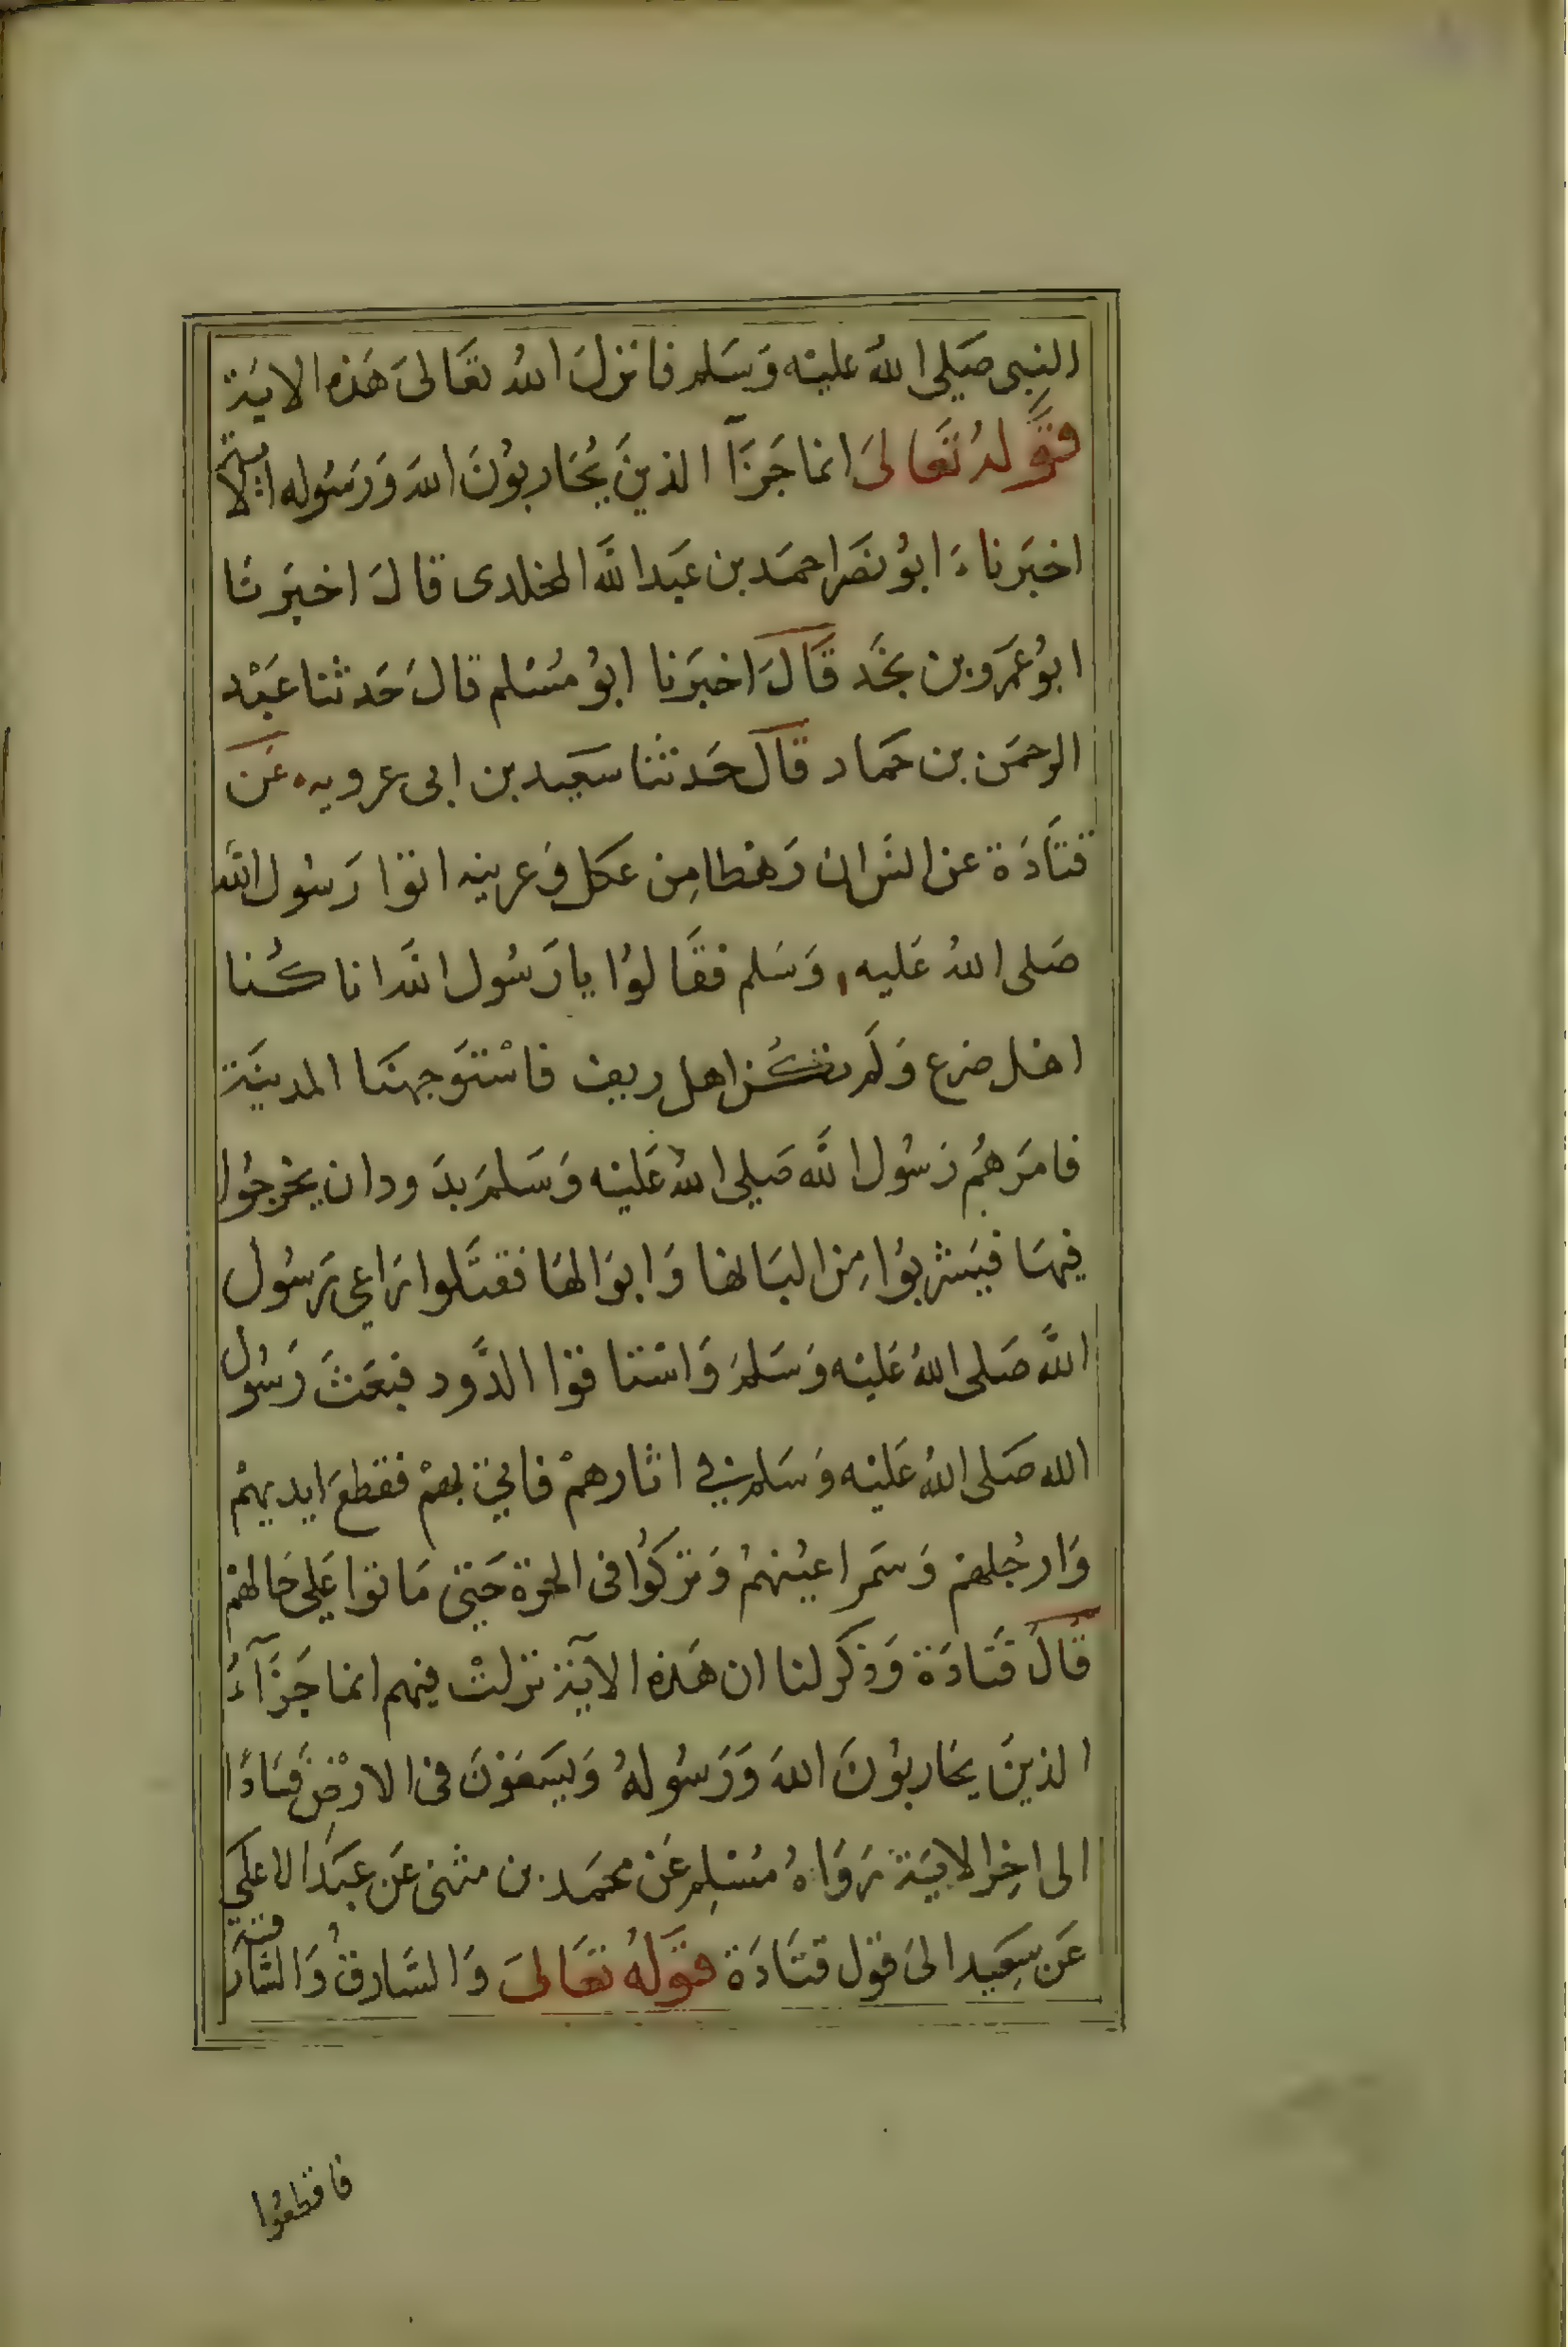 النبى صَلى الله عليْه وَسَلم فانزلَ اللهُ تعَالىَ هَذه الايَة
قوَلهُ تعَالىَ انما جَزَآ الذينَ يُحَاربوُنَ اللهَ وَرَسُوله الايَة
اخبَرناءَ ابوُ نصَر احمَد بن عَبد اللَّه المخلدى قالَ اخبَرنَا
ابوُ عَمرَو بن نجَد قالَ اخبَرَنا ابوُ مُسْلم قالَ حَدثنا عَبْد
الرحمَن بن حَماد قالَ حَدثنَا سَعَيد بن ابى عروبه عَن
قتَادَة عن انس ان رَهْطا مِن عكل وَعرينه اتوَا رَسُول الله
صَلى اللهُ عَليه وَسَلم فقَالوُا يا رَسُول الله انا كُنا
اهْل ضرع وَلَم نكُن اهل ريف فاسْتوَجهنَا المدينَة
فامَرهُم رَسُول الله صَلى اللهُ عَليْه وَسَلمَ بدَود ان يخرجُوا
فيهَا فيَشربوُا مِن البَالهَا وَابوَالهَا فقتَلوا رَاعى رَسُول
اللَّه صَلى اللهُ عَليْه وَسَلمَ وَاسْتاقوا الدَّود فبعَثَ رَسُول
الله صَلى اللهُ عَليْه وَسَلم في اثارهمْ فاتىَ بهمْ فقطعَ ايديهمْ
وَارجُلهمْ وَسَمر اعيُنهمُ وَتركوُا فى الحرة حَتى مَاتوا عَلى حَالهمْ
قالَ قتَادَة وَذكر لنا ان هَذه الآيَة نزلتْ فيهم انما جَزَآءُ
الذينَ يحَاربوُنَ اللهَ وَرَسُولهُ وَيسَعَوْنَ فى الارْضِ فسَادًا
الى اخِر الايَة رَوَاهُ مسْلِم عَن محمَد بن مثنى عَن عَبد الاعلى
عَن سَعِيد الىَ قول قتَادَة قوَلهُ تعَالىَ وَالسَّارقُ وَالسَّارقة
فاقطعُوا